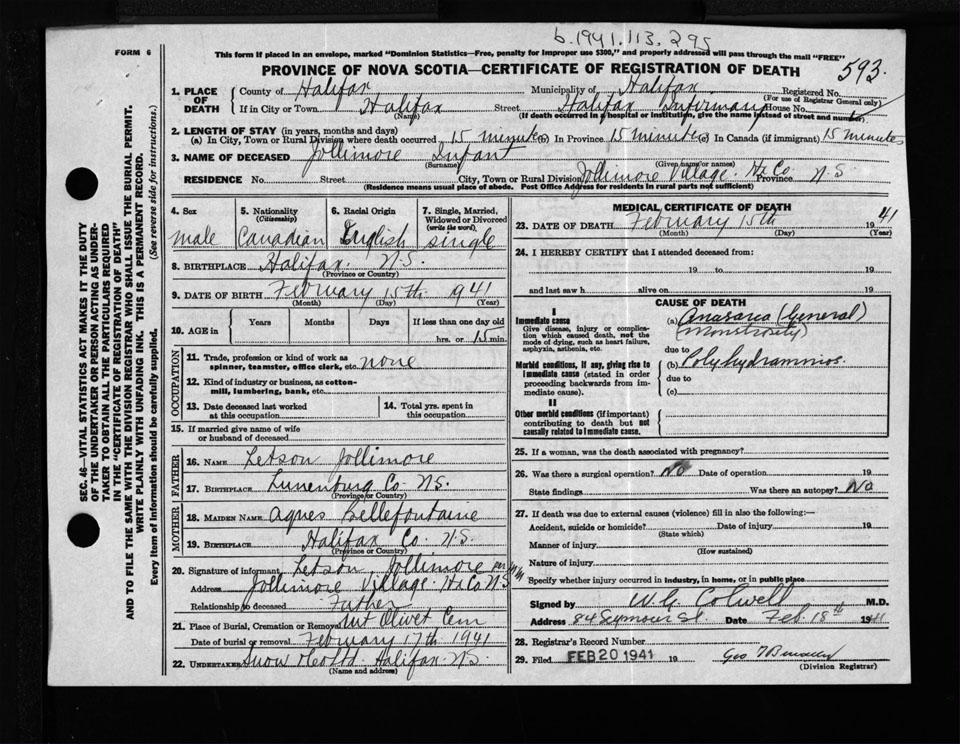 b.1941.113.295
FORM 6
This form if placed in an envelope, marked "Dominion Statistics—Free, penalty for improper use $300," and properly addressed will pass through the mail "FREE"
PROVINCE OF NOVA SCOTIA—CERTIFICATE OF REGISTRATION OF DEATH 593.
1. PLACE OF DEATH County of Halifax Municipality of Halifax Registered No.
(For use of Registrar General only)
If in City or Town Halifax Street Halifax Infirmary House No.
(Name) (If death occurred in a hospital or institution, give the name instead of street and number)
2. LENGTH OF STAY (in years, months and days)
(a) In City, Town or Rural Division where death occurred 15 minutes (b) In Province 15 minutes (c) In Canada (if immigrant) 15 minutes
3. NAME OF DECEASED Jollimore Infant
(Surname) (Given name or names)
RESIDENCE No. Street City, Town or Rural Division Jollimore Village. Hx Co. Province N.S.
(Residence means usual place of abode. Post Office Address for residents in rural parts not sufficient)
4. Sex 5. Nationality (Citizenship) 6. Racial Origin 7. Single, Married, Widowed or Divorced (write the word)
male Canadian English single
8. BIRTHPLACE Halifax. N.S.
(Province or Country)
9. DATE OF BIRTH February 15th 1941
(Month) (Day) (Year)
10. AGE in Years Months Days If less than one day old
hrs. or 15 min.
OCCUPATION
11. Trade, profession or kind of work as spinner, teamster, office clerk, etc. none
12. Kind of industry or business, as cotton-mill, lumbering, bank, etc.
13. Date deceased last worked at this occupation
14. Total yrs. spent in this occupation
15. If married give name of wife or husband of deceased
FATHER
16. NAME Letson Jollimore
17. BIRTHPLACE Lunenburg Co N.S.
(Province or Country)
MOTHER
18. MAIDEN NAME Agnes Bellefontaine
19. BIRTHPLACE Halifax Co. N.S.
(Province or Country)
20. Signature of informant Letson Jollimore per
Address Jollimore Village. Hx Co N.S.
Relationship to deceased Father
21. Place of Burial, Cremation or Removal Mt Olivet Cem
Date of burial or removal February 17th 1941
22. UNDERTAKER Snow & Co Ltd. Halifax. N.S.
(Name and address)
MEDICAL CERTIFICATE OF DEATH
23. DATE OF DEATH February 15th 1941
(Month) (Day) (Year)
24. I HEREBY CERTIFY that I attended deceased from:
19 to 19
and last saw h alive on 19
CAUSE OF DEATH
I
Immediate cause
Give disease, injury or complication which caused death, not the mode of dying, such as heart failure, asphyxia, asthenia, etc.
(a) Anasarca (General)
(Monstrosity)
due to
Morbid conditions, if any, giving rise to immediate cause (stated in order proceeding backwards from immediate cause).
(b) Polyhydramnios.
due to
(c)
II
Other morbid conditions (if important) contributing to death but not causally related to immediate cause.
25. If a woman, was the death associated with pregnancy?
26. Was there a surgical operation? No Date of operation 19
State findings Was there an autopsy? No
27. If death was due to external causes (violence) fill in also the following:—
Accident, suicide or homicide? Date of injury 19
(State which)
Manner of injury
(How sustained)
Nature of injury
Specify whether injury occurred in industry, in home, or in public place
Signed by W.G. Colwell M.D.
Address 84 Seymour St. Date Feb. 18th 1941
28. Registrar's Record Number
29. Filed FEB 20 1941 19 Geo
(Division Registrar)
SEC. 46—VITAL STATISTICS ACT MAKES IT THE DUTY
OF THE UNDERTAKER OR PERSON ACTING AS UNDER-
TAKER TO OBTAIN ALL THE PARTICULARS REQUIRED
IN THE "CERTIFICATE OF REGISTRATION OF DEATH"
AND TO FILE THE SAME WITH THE DIVISION REGISTRAR WHO SHALL ISSUE THE BURIAL PERMIT.
WRITE PLAINLY WITH UNFADING INK. THIS IS A PERMANENT RECORD.
Every item of information should be carefully supplied. (See reverse side for instructions.)